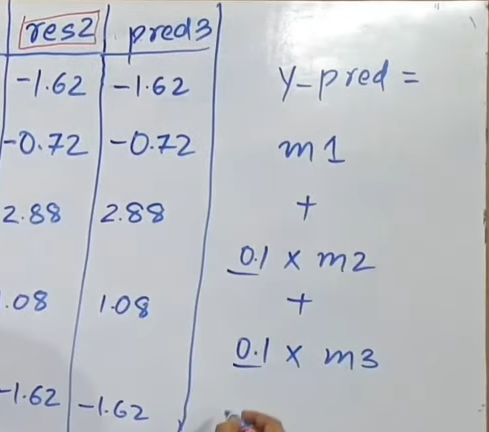 res2 pred3
-1.62 -1.62
-0.72 -0.72
2.88 2.88
.08 1.08
-1.62 -1.62
y-pred =
m1
+
0.1 x m2
+
0.1 x m3